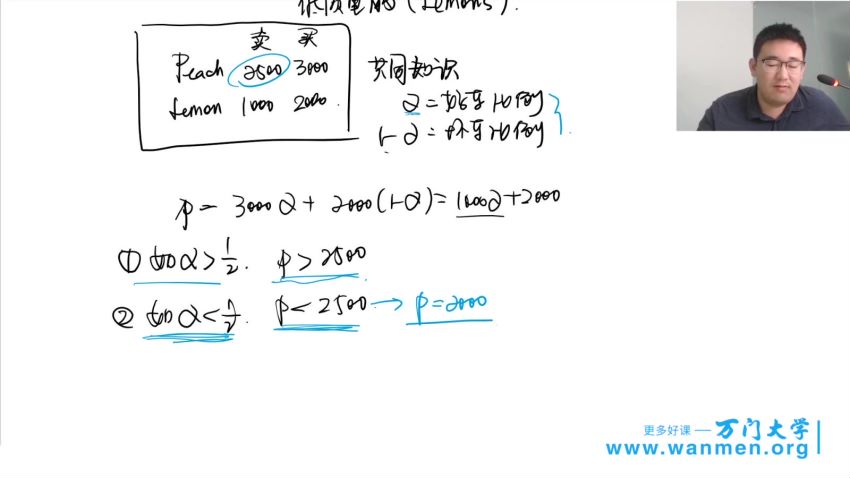 低质电脑 (Lemons).
卖 买
Peach 2500 3000
Lemon 1000 2000.
共同知识
α = 好车的比例
1-α = 坏车的比例
p = 3000α + 2000(1-α) = 1000α + 2000
① 如α > 1/2. p > 2500
② 如α < 1/2. p < 2500 → p = 2000
更多好课 — 万门大学
www.wanmen.org